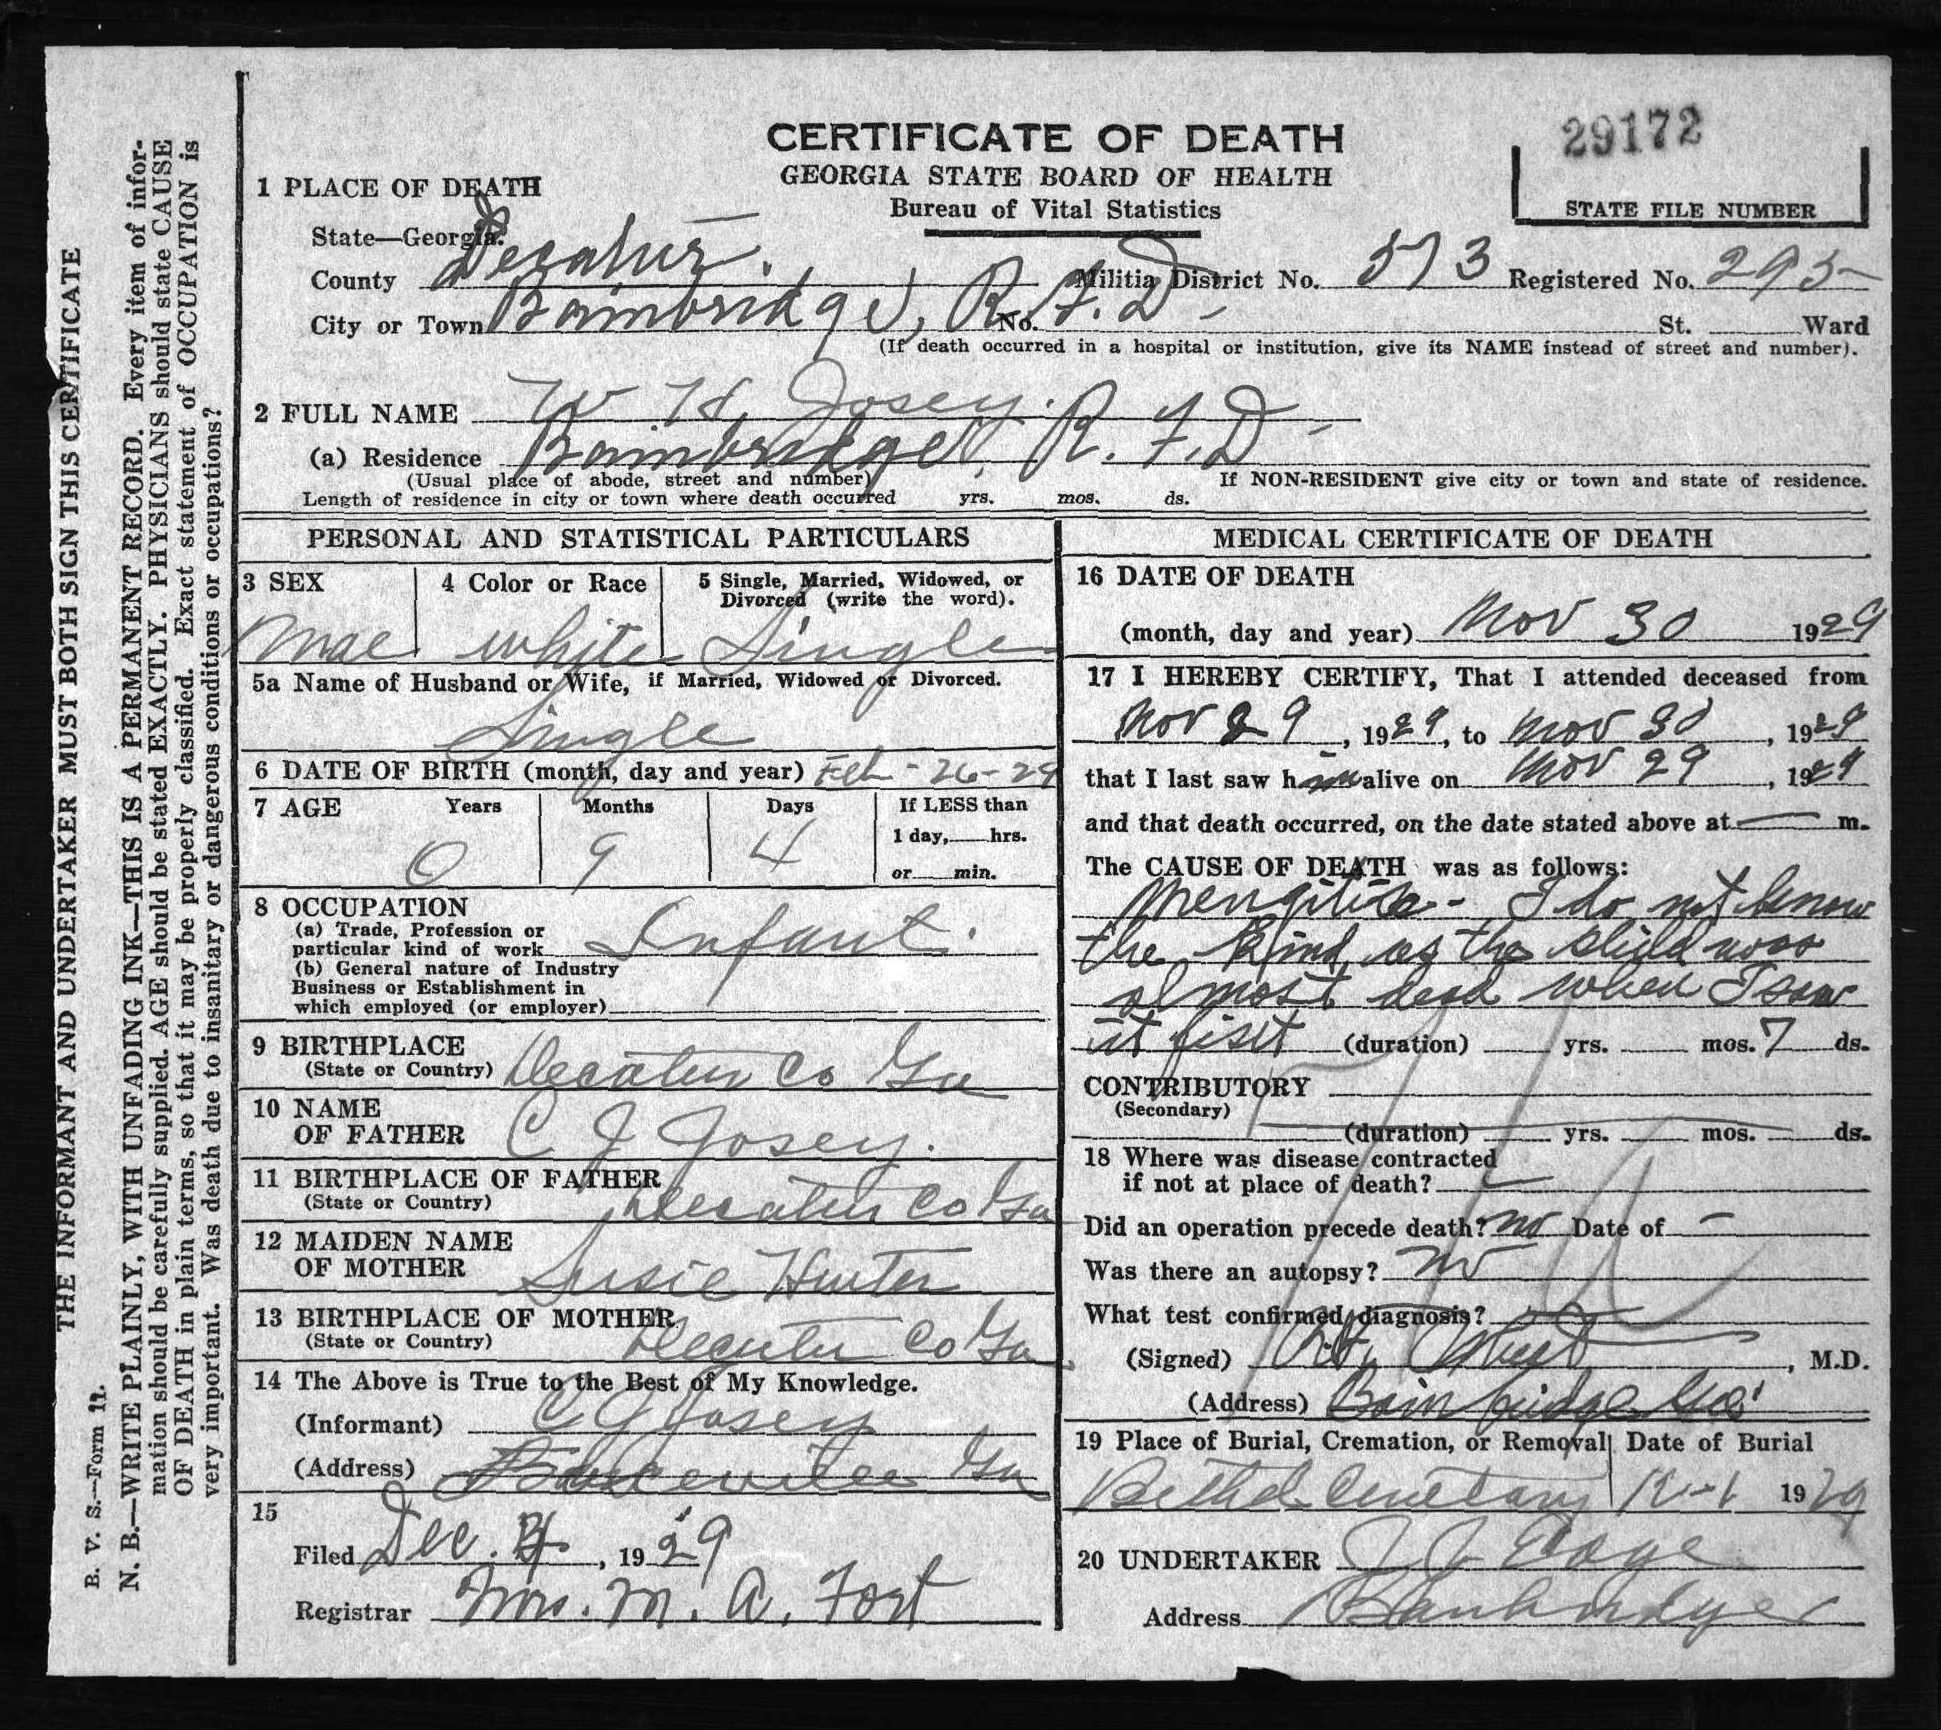 THE INFORMANT AND UNDERTAKER MUST BOTH SIGN THIS CERTIFICATE
N. B.—WRITE PLAINLY, WITH UNFADING INK—THIS IS A PERMANENT RECORD. Every item of infor-
mation should be carefully supplied. AGE should be stated EXACTLY. PHYSICIANS should state CAUSE
OF DEATH in plain terms, so that it may be properly classified. Exact statement of OCCUPATION is
very important. Was death due to insanitary or dangerous conditions or occupations?
B. V. S.—Form 11.
29172
CERTIFICATE OF DEATH
GEORGIA STATE BOARD OF HEALTH
Bureau of Vital Statistics
STATE FILE NUMBER
1 PLACE OF DEATH
State—Georgia.
County Decatur. Militia District No. 573 Registered No. 295
City or Town Bainbridge, R.F.D- No. St. Ward
(If death occurred in a hospital or institution, give its NAME instead of street and number).
2 FULL NAME W H. Josey.
(a) Residence Bainbridge, R.F.D-
(Usual place of abode, street and number) If NON-RESIDENT give city or town and state of residence.
Length of residence in city or town where death occurred yrs. mos. ds.
PERSONAL AND STATISTICAL PARTICULARS
3 SEX 4 Color or Race 5 Single, Married, Widowed, or
Divorced (write the word).
Mae white Single
5a Name of Husband or Wife, if Married, Widowed or Divorced.
Single
6 DATE OF BIRTH (month, day and year) Feb-26-29
7 AGE Years Months Days If LESS than
1 day, hrs.
0 9 4
or min.
8 OCCUPATION
(a) Trade, Profession or
particular kind of work Infant.
(b) General nature of Industry
Business or Establishment in
which employed (or employer)
9 BIRTHPLACE
(State or Country) Decatur Co Ga
10 NAME
OF FATHER C J Josey.
11 BIRTHPLACE OF FATHER
(State or Country) Decatur Co Ga
12 MAIDEN NAME
OF MOTHER Susie Hunter
13 BIRTHPLACE OF MOTHER
(State or Country) Decatur Co Ga
14 The Above is True to the Best of My Knowledge.
(Informant) C J Josey
(Address) Ga
15
Filed Dec. 4, 1929
Registrar Mrs. M. A. Fort
MEDICAL CERTIFICATE OF DEATH
16 DATE OF DEATH
(month, day and year) Nov 30 1929
17 I HEREBY CERTIFY, That I attended deceased from
Nov 29, 1929, to Nov 30, 1929
that I last saw him alive on Nov 29, 1929
and that death occurred, on the date stated above at — m.
The CAUSE OF DEATH was as follows:
Mengitis - I do not know
the kind, as the child was
almost dead when I saw
it first (duration) yrs. mos. 7 ds.
CONTRIBUTORY
(Secondary)
(duration) yrs. mos. ds.
18 Where was disease contracted
if not at place of death? —
Did an operation precede death? no Date of —
Was there an autopsy? no
What test confirmed diagnosis?
(Signed) , M.D.
(Address) Bainbridge Ga
19 Place of Burial, Cremation, or Removal Date of Burial
Bethel Cemetary 12-1 1929
20 UNDERTAKER
Address